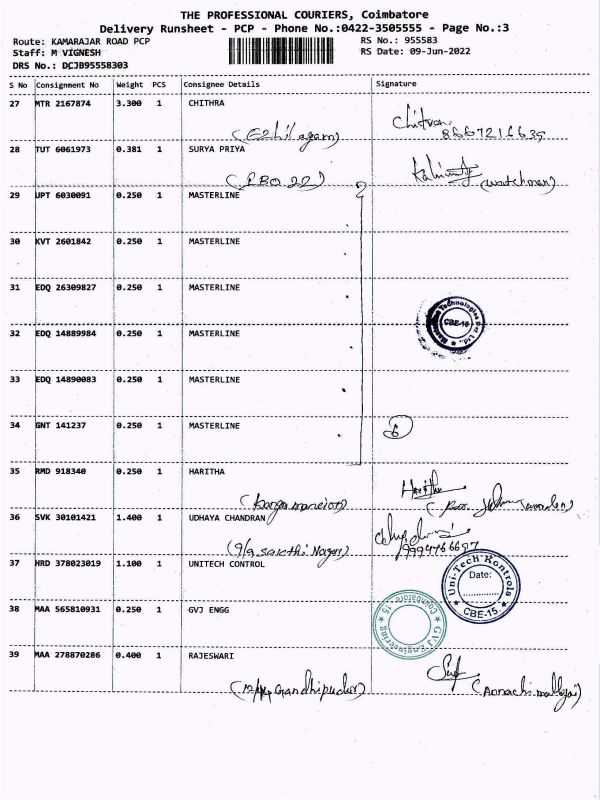 THE PROFESSIONAL COURIERS, Coimbatore
Delivery Runsheet - PCP - Phone No.:0422-3505555 - Page No.:3
Route: KAMARAJAR ROAD PCP RS No.: 955583
Staff: M VIGNESH RS Date: 09-Jun-2022
DRS No.: DCJB95558303
S No Consignment No Weight PCS Consignee Details Signature
27 MTR 2167874 3.300 1 CHITHRA
(Ezhil agam)
28 TUT 6061973 0.381 1 SURYA PRIYA
(watchman)
29 UPT 6030091 0.250 1 MASTERLINE
30 KVT 2601842 0.250 1 MASTERLINE
31 EDQ 26309827 0.250 1 MASTERLINE
Technologies Pvt. Ltd. CBE-15
32 EDQ 14889984 0.250 1 MASTERLINE
33 EDQ 14890083 0.250 1 MASTERLINE
34 GNT 141237 0.250 1 MASTERLINE 6
35 RMD 918340 0.250 1 HARITHA Haritha
36 SVK 30101421 1.400 1 UDHAYA CHANDRAN
(9/9 sakthi Nagar) 9994766697
37 HRD 378023019 1.100 1 UNITECH CONTROL
Uni-Tech Kontrols Date: CBE-15.
38 MAA 565810931 0.250 1 GVJ ENGG
GVJ Engineering Coimbatore - 15
39 MAA 278870286 0.400 1 RAJESWARI